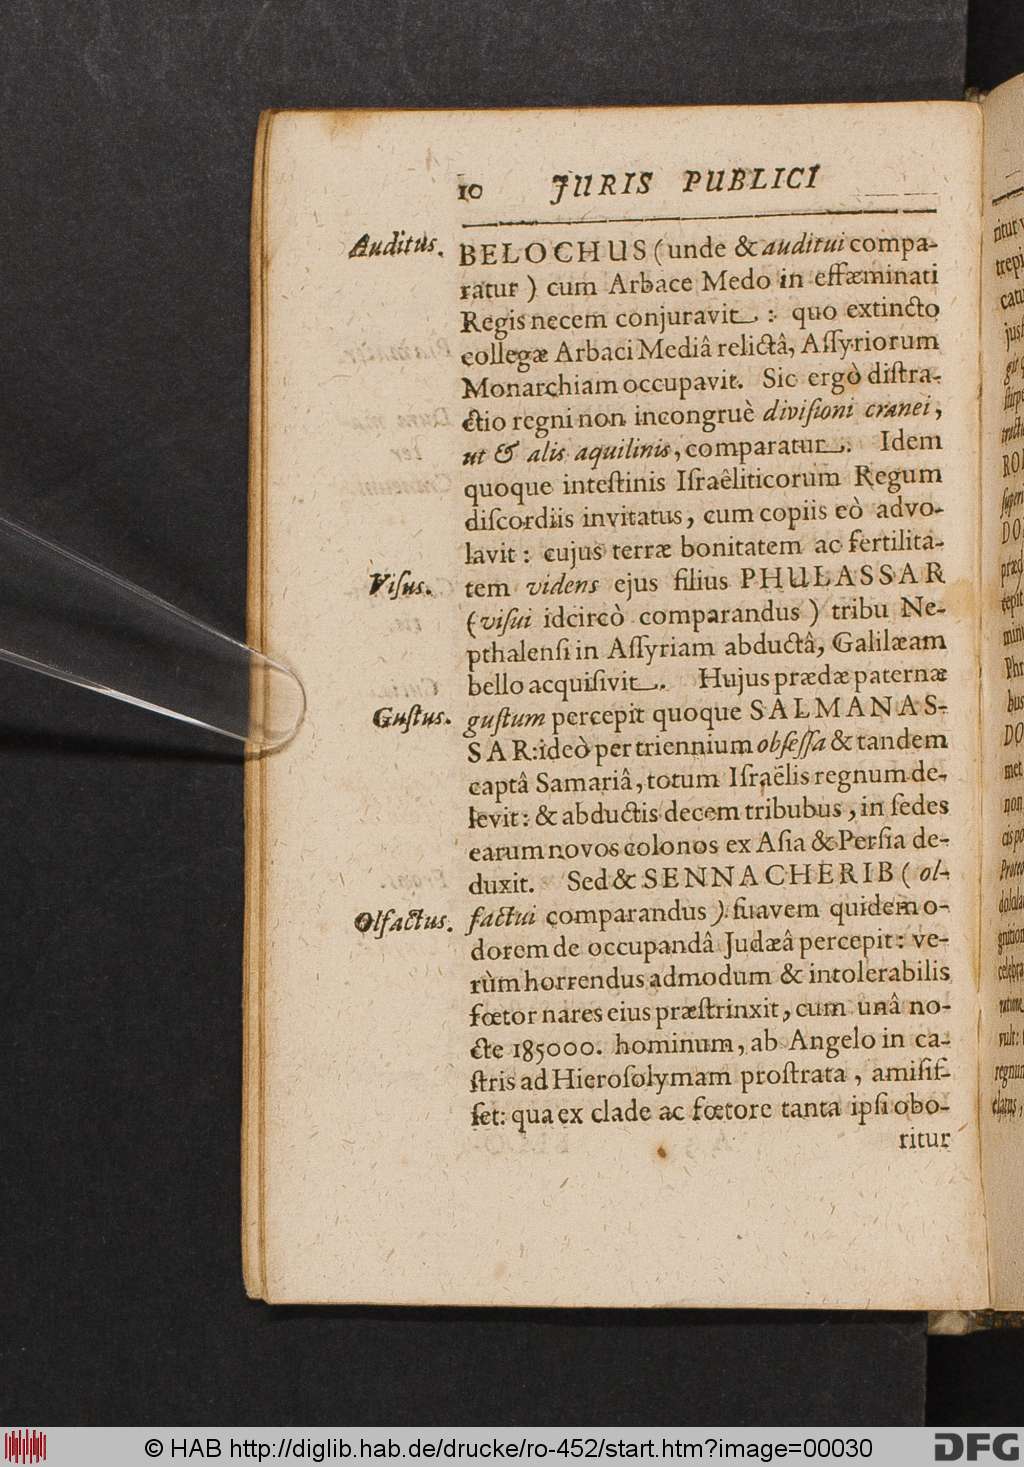 10 JURIS PUBLICI
Auditus. BELOCHUS (unde & auditui compa-
ratur) cum Arbace Medo in effæminati
Regis necem conjuravit: quo extincto
collegæ Arbaci Mediâ relictâ, Aſſyriorum
Monarchiam occupavit. Sic ergò diſtra-
ctio regni non incongruè diviſioni cranei,
ut & alis aquilinis, comparatur. Idem
quoque inteſtinis Iſraêliticorum Regum
diſcordiis invitatus, cum copiis eò advo-
lavit: cujus terræ bonitatem ac fertilita-
Viſus. tem videns ejus filius PHULASSAR
(viſui idcircò comparandus) tribu Ne-
pthalenſi in Aſſyriam abductâ, Galilæam
bello acquiſivit. Hujus prædæ paternæ
Guſtus. guſtum percepit quoque SALMANAS-
SAR: ideò per triennium obſeſſa & tandem
captâ Samariâ, totum Iſraëlis regnum de-
levit: & abductis decem tribubus, in ſedes
earum novos colonos ex Aſia & Perſia de-
duxit. Sed & SENNACHERIB (ol-
Olfactus. factui comparandus) ſuavem quidem o-
dorem de occupandâ Judæâ percepit: ve-
rùm horrendus admodum & intolerabilis
fœtor nares eius præſtrinxit, cum unâ no-
cte 185000. hominum, ab Angelo in ca-
ſtris ad Hieroſolymam proſtrata, amiſiſ-
ſet: qua ex clade ac fœtore tanta ipſi obo-
ritur
© HAB http://diglib.hab.de/drucke/ro-452/start.htm?image=00030
DFG